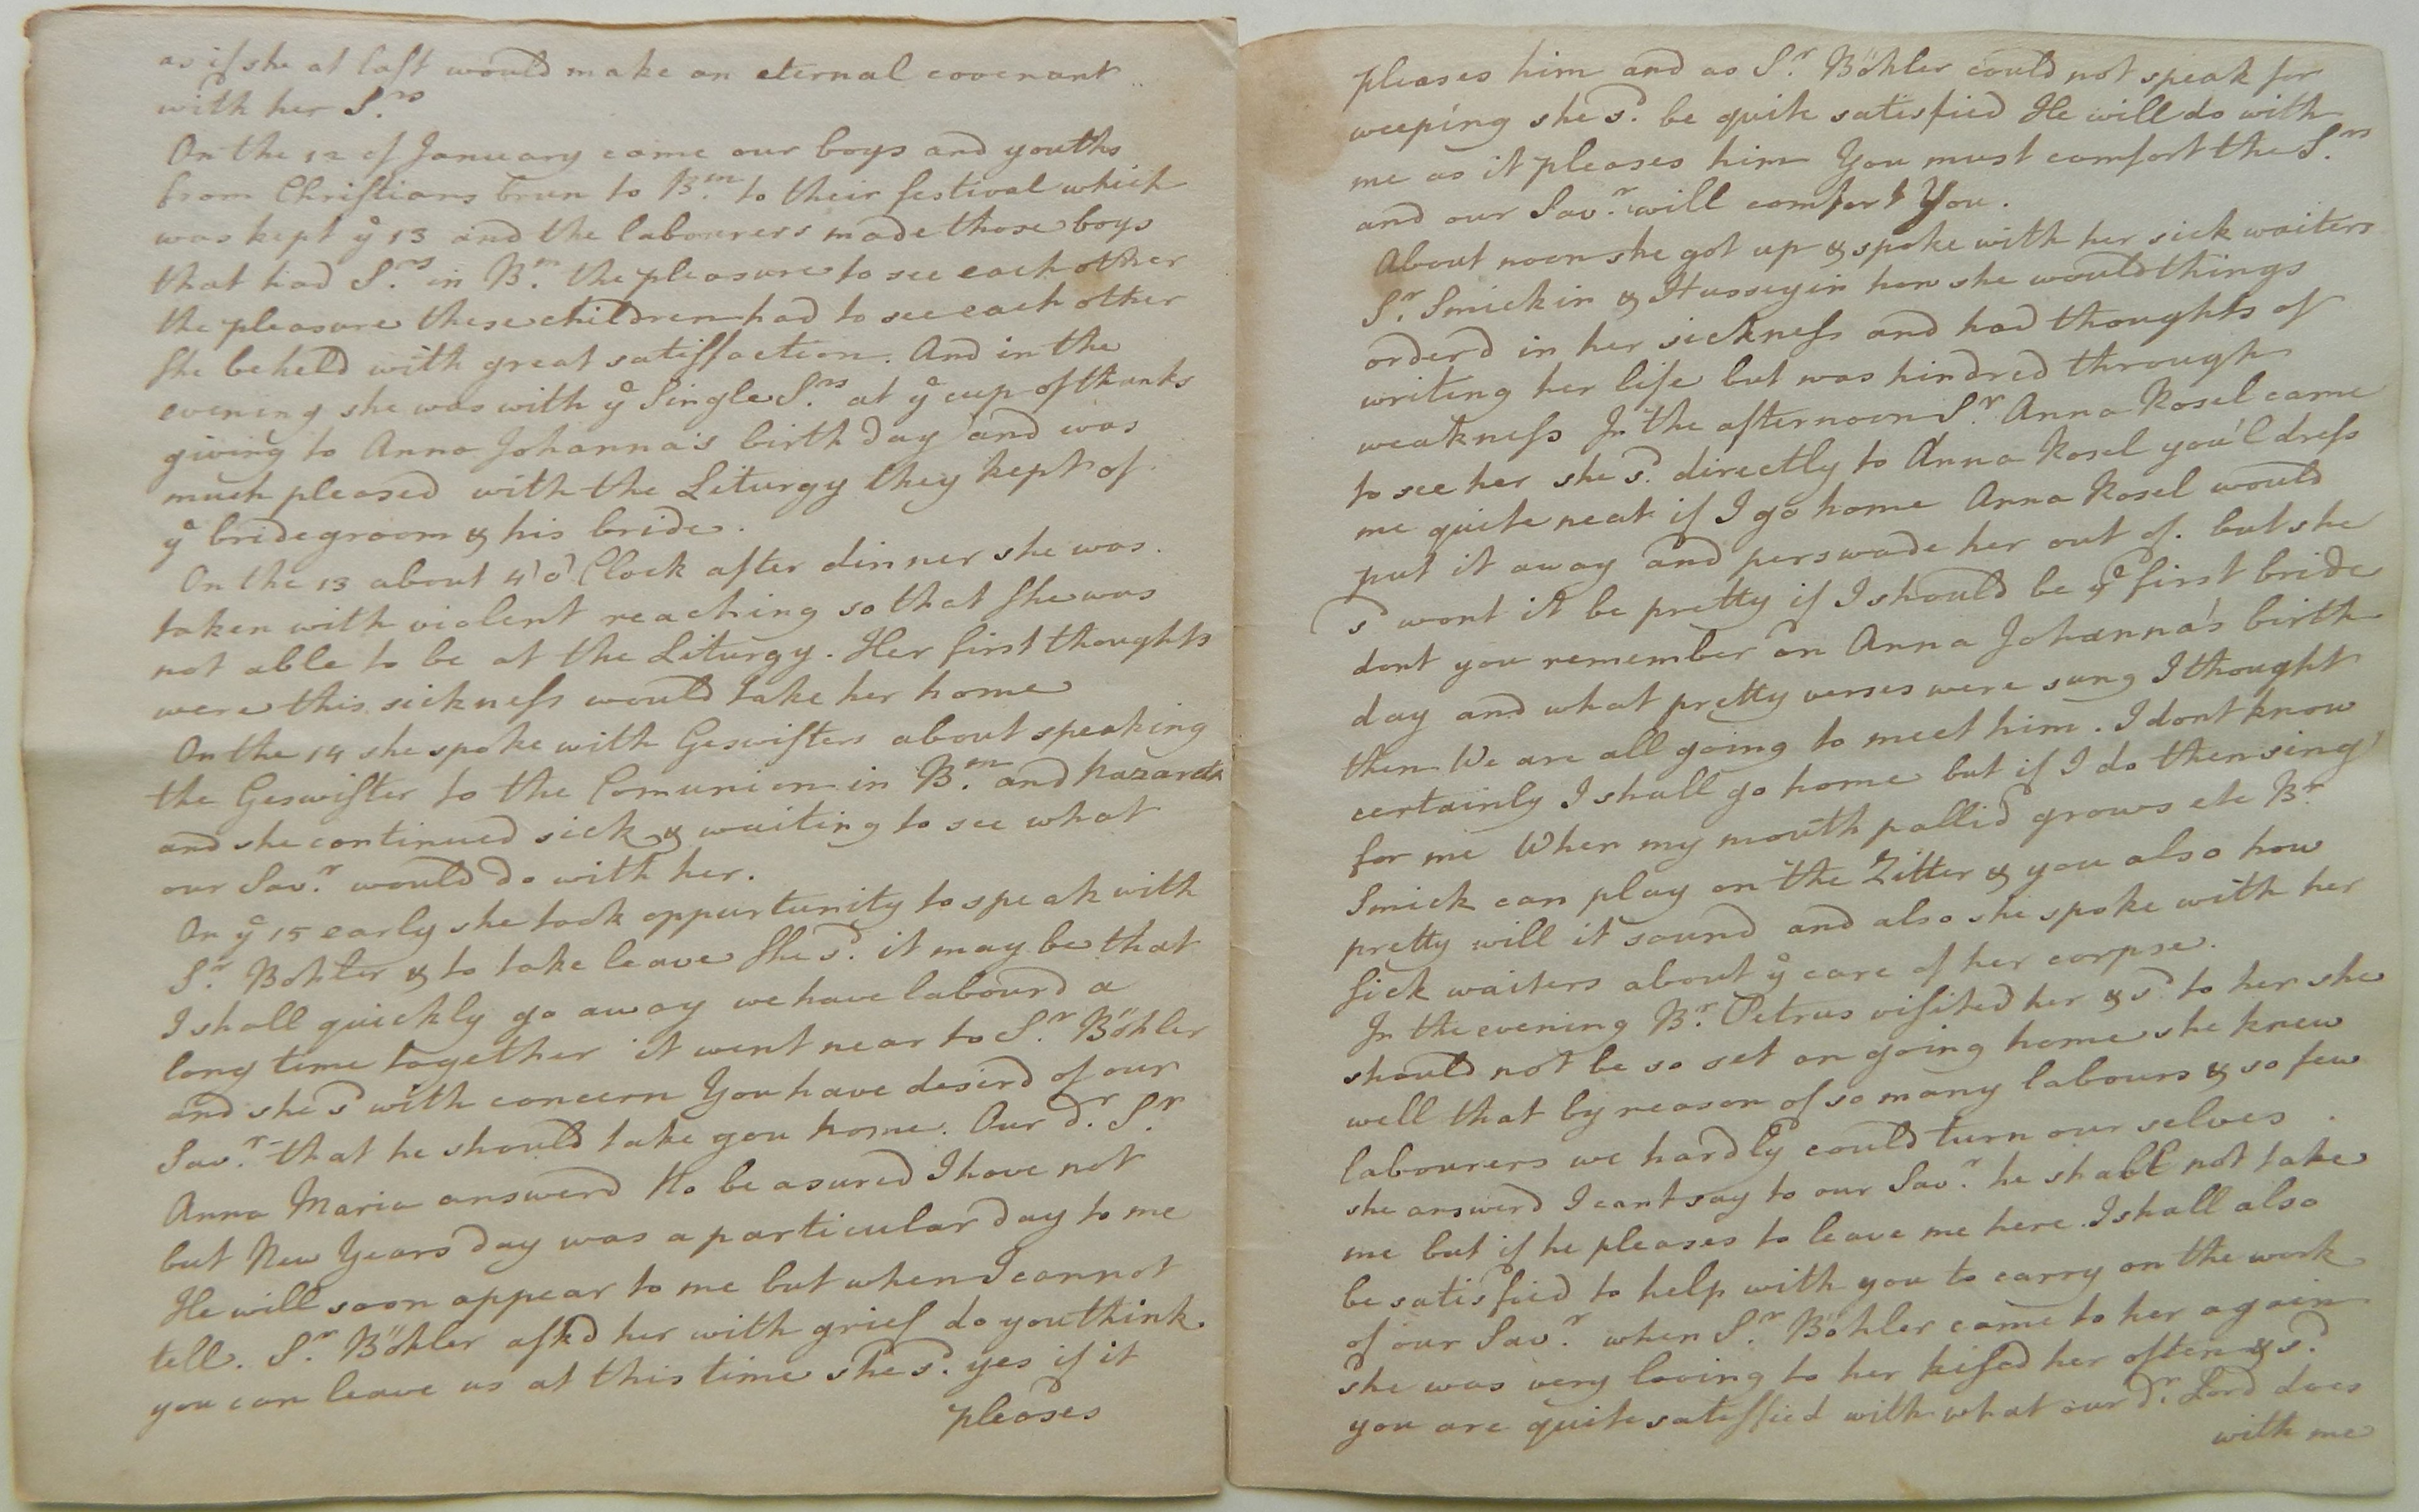 as if she at last would make an eternal covenant
with her S.rs
On the 12 of January came our boys and youths
from Christians brun to B.m to their festival which
was kept ye 13 and the labourers made those boys
that had S.rs in B.m the pleasure to see each other
the pleasure these children had to see each other
She beheld with great satisfaction. And in the
evening she was with ye Single S.rs at ye cup of thanks
giving to Anna Johanna's birth day and was
much pleased with the Liturgy they kept of
ye bridegroom & his bride.
On the 13 about 4 'o' Clock after dinner she was
taken with violent reaching so that She was
not able to be at the Liturgy. Her first thoughts
were this sickness would take her home
On the 14 she spoke with Geswisters about speaking
the Geswister to the Comunion in B.m and Nazareth
and she continued sick & waiting to see what
our Sav.r would do with her.
On ye 15 early she took oppurtunity to speak with
S.r Böhler & to take leave She s.d it may be that
I shall quickly go away we have labourd a
long time together it went near to S.r Böhler
and she sd with concern You have desird of our
Sav.r that he should take you home. Our d.r S.r
Anna Maria answerd No be asured I have not
but New Years day was a particular day to me
He will soon appear to me but when I cannot
tell. S.r Böhler askd her with grief do you think
you can leave us at this time she s.d yes if it
pleases
pleases him and as S.r Böhler could not speak for
weeping she s.d be quite satisfied He will do with
me as it pleases him You must comfort the S.rs
and our Sav.r will comfort You.
About noon she got up & spoke with her sick waiters
S.r Smickin & Husseyin how she would things
orderd in her sickness and had thoughts of
writing her life but was hindred through
weakness In the afternoon S.r Anna Rosel came
to see her she s.d directly to Anna Rosel you'l dress
me quite neat if I go home Anna Rosel would
put it away and perswade her out of. but she
sd wont it be pretty if I should be ye first bride
dont you remember on Anna Johanna's birth
day and what pretty verses were sung I thought
then We are all going to meet him. I dont know
certainly I shall go home but if I do then sing
for me When my mouth pallid grows etc B.r
Smick can play on the Zitter & you also how
pretty will it sound and also she spoke with her
Sick waiters about ye care of her corpse.
In the evening B.r Petrus visited her & sd to her she
should not be so set on going home she knew
well that by reason of so many labours & so few
labourers we hardly could turn our selves
she answerd I cant say to our Sav.r he shall not take
me but if he pleases to leave me here I shall also
be satisfied to help with you to carry on the work
of our Sav.r when S.r Böhler came to her again
she was very loving to her kised her often & s.d
you are quite satisfied with what our d.r Lord does
with me